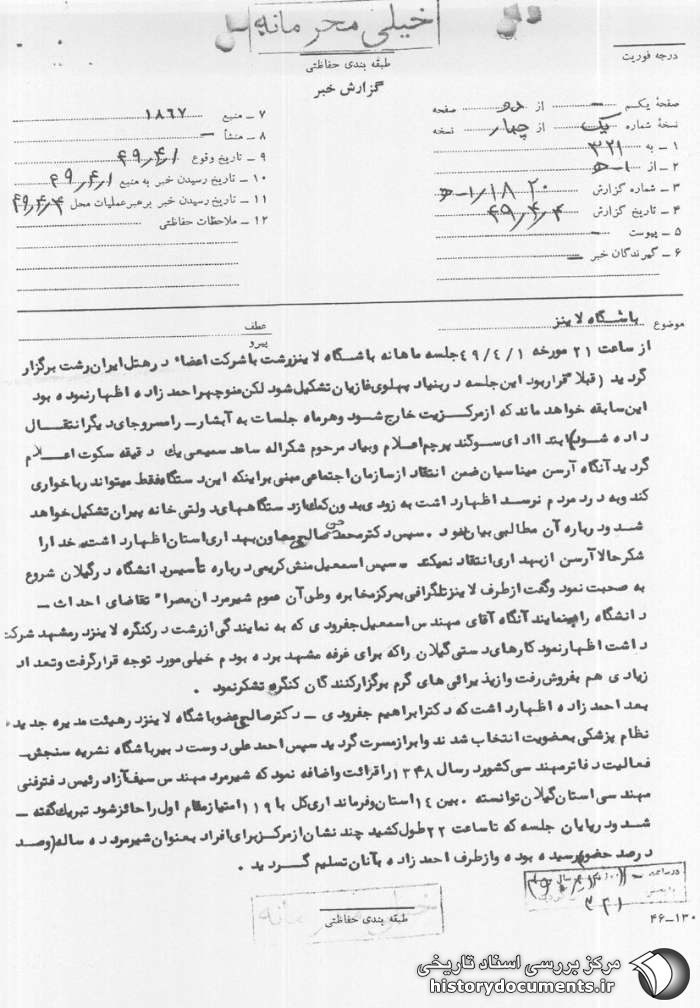 خیلی محرمانه
طبقه بندی حفاظتی
درجه فوریت
گزارش خبر
صفحهٔ یکم – از دو صفحه
نسخهٔ شماره یک از چهار نسخه
۱ – به ۳۲۱
۲ – از ۱-ه
۳ – شماره گزارش ۱۸۲۰/۱-ه
۴ – تاریخ گزارش ۴۹/۴/۴
۵ – پیوست –
۶ – گیرندگان خبر –
۷ – منبع ۱۸۶۷
۸ – منشأ –
۹ – تاریخ وقوع ۴۹/۴/۱
۱۰ – تاریخ رسیدن خبر به منبع ۴۹/۴/۱
۱۱ – تاریخ رسیدن خبر برهبر عملیات محل ۴۹/۴/۴
۱۲ – ملاحظات حفاظتی
موضوع باشگاه لاینز
عطف
پیرو
از ساعت ۲۱ مورخه ۴۹/۴/۱ جلسه ماهانه باشگاه لاینز رشت با شرکت اعضاء در هتل ایران رشت برگزار
گردید (قبلا قرار بود این جلسه در بنیاد پهلوی غازیان تشکیل شود لکن منوچهر احمد زاده اظهار نموده بود
این سابقه خواهد ماند که از مرکزیت خارج شود و هر ماه جلسات به آبشار – رامسر و جای دیگر انتقال
داده شود) ابتدا ادای سوگند پرچم اعلام و بیاد مرحوم شکراله ساعد سمیعی یک دقیقه سکوت اعلام
گردید آنگاه آرسن میناسیان ضمن انتقاد از سازمان اجتماعی مبنی بر اینکه این دستگاه فقط میتواند رباخواری
کند و به درد مردم نرسد اظهار داشت به زودی بدون کمک از دستگاههای دولتی خانه پیران تشکیل خواهد
شد و درباره آن مطالبی بیان نمود . سپس دکتر محمد صالحی معاون بهداری استان اظهار داشت خدا را
شکر حالا آرسن از بهداری انتقاد نمیکند . سپس اسمعیل منش کریمی درباره تأسیس دانشگاه در گیلان شروع
به صحبت نمود و گفت از طرف لاینز تلگرافی بمرکز مخابره و طی آن عموم شیر مردان مصراً تقاضای احداث –
دانشگاه را مینمایند آنگاه آقای مهندس اسمعیل جفرودی که به نمایندگی از رشت در کنگره لاینز در مشهد شرکت
داشت اظهار نمود کارهای دستی گیلان را که برای غرفه مشهد برده بودم خیلی مورد توجه قرار گرفت و تعداد
زیادی هم بفروش رفت و از پذیرائی های گرم برگزار کنندگان کنگره تشکر نمود .
بعد احمد زاده اظهار داشت که دکتر ابراهیم جفرودی – دکتر صالحی عضو باشگاه لاینز در هیئت مدیره جدید
نظام پزشکی بعضویت انتخاب شدند و ابراز مسرت گردید سپس احمد علی دوست دبیر باشگاه نشریه سنجش –
فعالیت دفاتر مهندسی کشور در سال ۱۳۴۸ را قرائت و اضافه نمود که شیر مرد مهندس سیف آزاد رئیس دفتر فنی
مهندسی استان گیلان توانسته . بین ۱۴ استان و فرمانداری کل با ۱۱۹ امتیاز مقام اول را حائز شود تبریک گفته –
شد و در پایان جلسه که تا ساعت ۲۲ طول کشید چند نشان از مرکز برای افراد بعنوان شیر مرد ده ساله (و صد
درصد حضور) رسیده بوده و از طرف احمد زاده به آنان تسلیم گردید .
۳۲۱
طبقه بندی حفاظتی
خیلی محرمانه
۴۶–۱۳۰
مرکز بررسی اسناد تاریخی
historydocuments.ir